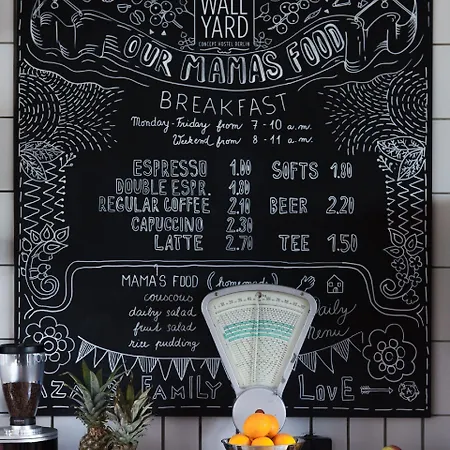 WALL
YARD
CONCEPT HOSTEL BERLIN
OUR MAMAS FOOD
BREAKFAST
Monday - Friday from 7 - 10 a.m.
Weekend from 8 - 11 a.m.
ESPRESSO 1.00 SOFTS 1.80
DOUBLE ESPR. 1.80
REGULAR COFFEE 2.10 BEER 2.20
CAPUCCINO 2.30
LATTE 2.70 TEE 1.50
MAMA'S FOOD (homemade)
couscous
daily salad
fruit salad
rice pudding
Daily
Menu
FAMILY LOVE